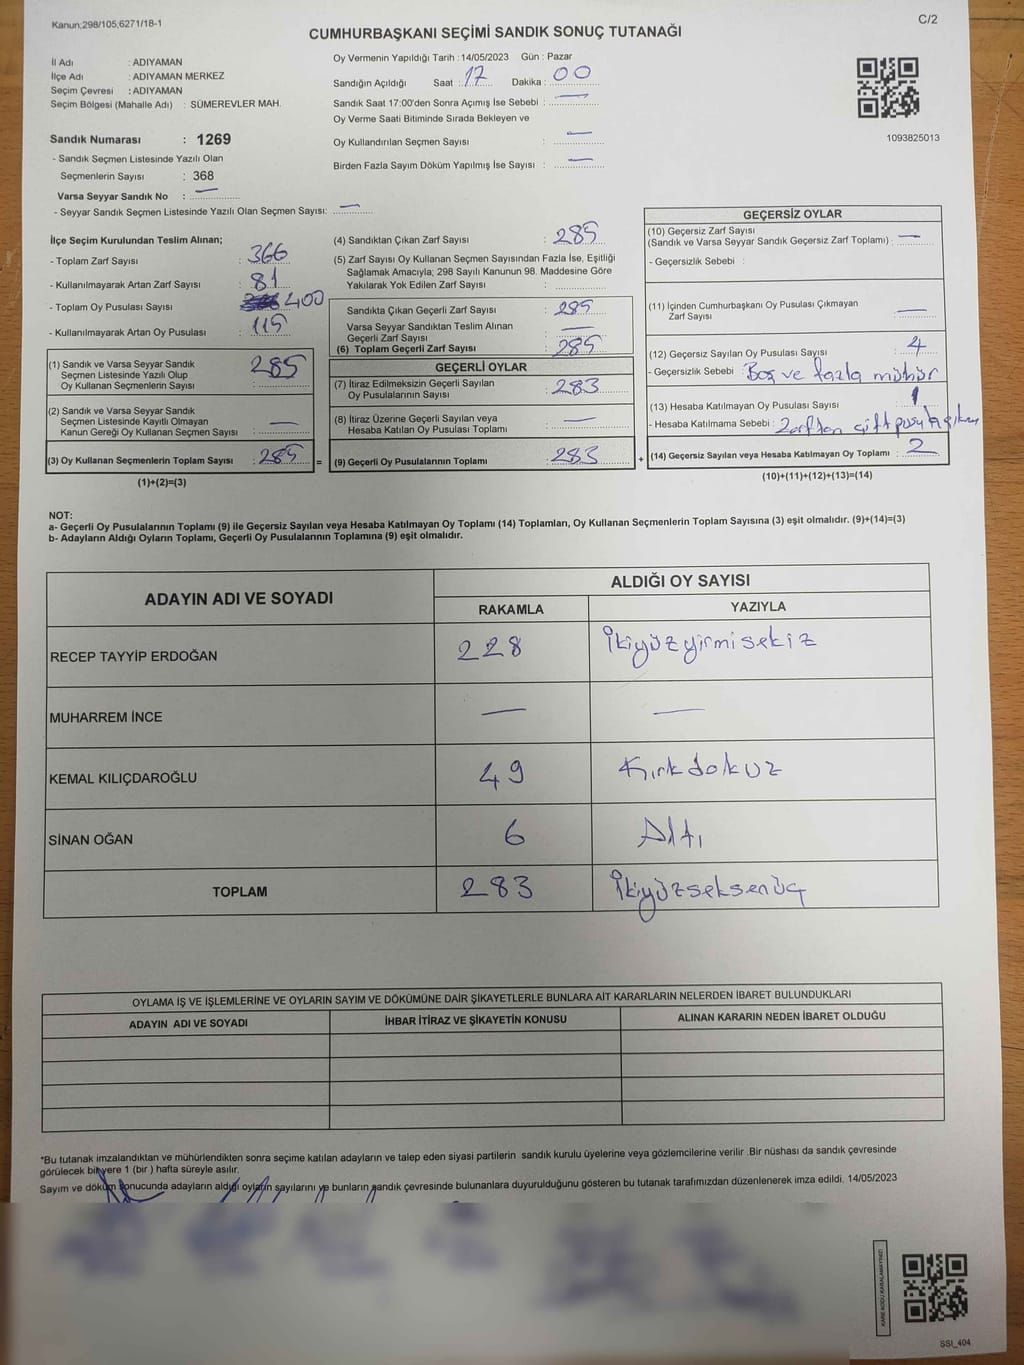 Kanun;298/105;6271/18-1
C/2
CUMHURBAŞKANI SEÇİMİ SANDIK SONUÇ TUTANAĞI
İl Adı : ADIYAMAN
İlçe Adı : ADIYAMAN MERKEZ
Seçim Çevresi : ADIYAMAN
Seçim Bölgesi (Mahalle Adı) : SÜMEREVLER MAH.
Sandık Numarası : 1269
- Sandık Seçmen Listesinde Yazılı Olan
Seçmenlerin Sayısı : 368
Varsa Seyyar Sandık No : —
- Seyyar Sandık Seçmen Listesinde Yazılı Olan Seçmen Sayısı: —
Oy Vermenin Yapıldığı Tarih : 14/05/2023 Gün : Pazar
Sandığın Açıldığı Saat : 17 Dakika : 00
Sandık Saat 17:00'den Sonra Açımış İse Sebebi : —
Oy Verme Saati Bitiminde Sırada Bekleyen ve
Oy Kullandırılan Seçmen Sayısı : —
Birden Fazla Sayım Döküm Yapılmış İse Sayısı : —
1093825013
İlçe Seçim Kurulundan Teslim Alınan;
- Toplam Zarf Sayısı : 366
- Kullanılmayarak Artan Zarf Sayısı : 81
- Toplam Oy Pusulası Sayısı : 400
- Kullanılmayarak Artan Oy Pusulası : 115
(1) Sandık ve Varsa Seyyar Sandık
Seçmen Listesinde Yazılı Olup
Oy Kullanan Seçmenlerin Sayısı : 285
(2) Sandık ve Varsa Seyyar Sandık
Seçmen Listesinde Kayıtlı Olmayan
Kanun Gereği Oy Kullanan Seçmen Sayısı : —
(3) Oy Kullanan Seçmenlerin Toplam Sayısı : 285 =
(1)+(2)=(3)
(4) Sandıktan Çıkan Zarf Sayısı : 285
(5) Zarf Sayısı Oy Kullanan Seçmen Sayısından Fazla İse, Eşitliği
Sağlamak Amacıyla; 298 Sayılı Kanunun 98. Maddesine Göre
Yakılarak Yok Edilen Zarf Sayısı :
Sandıkta Çıkan Geçerli Zarf Sayısı : 285
Varsa Seyyar Sandıktan Teslim Alınan
Geçerli Zarf Sayısı : —
(6) Toplam Geçerli Zarf Sayısı : 285
GEÇERLİ OYLAR
(7) İtiraz Edilmeksizin Geçerli Sayılan
Oy Pusulalarının Sayısı : 283
(8) İtiraz Üzerine Geçerli Sayılan veya
Hesaba Katılan Oy Pusulası Toplamı : —
(9) Geçerli Oy Pusulalarının Toplamı : 283 +
GEÇERSİZ OYLAR
(10) Geçersiz Zarf Sayısı
(Sandık ve Varsa Seyyar Sandık Geçersiz Zarf Toplamı) : —
- Geçersizlik Sebebi :
(11) İçinden Cumhurbaşkanı Oy Pusulası Çıkmayan
Zarf Sayısı : —
(12) Geçersiz Sayılan Oy Pusulası Sayısı :
- Geçersizlik Sebebi : Boş ve fazla mühür
(13) Hesaba Katılmayan Oy Pusulası Sayısı : 1
- Hesaba Katılmama Sebebi : Zarftan çift pusula
(14) Geçersiz Sayılan veya Hesaba Katılmayan Oy Toplamı : 2
(10)+(11)+(12)+(13)=(14)
NOT:
a- Geçerli Oy Pusulalarının Toplamı (9) ile Geçersiz Sayılan veya Hesaba Katılmayan Oy Toplamı (14) Toplamları, Oy Kullanan Seçmenlerin Toplam Sayısına (3) eşit olmalıdır. (9)+(14)=(3)
b- Adayların Aldığı Oyların Toplamı, Geçerli Oy Pusulalarının Toplamına (9) eşit olmalıdır.
ADAYIN ADI VE SOYADI
ALDIĞI OY SAYISI
RAKAMLA YAZIYLA
RECEP TAYYİP ERDOĞAN 228 İkiyüzyirmisekiz
MUHARREM İNCE — —
KEMAL KILIÇDAROĞLU 49 Kırkdokuz
SİNAN OĞAN 6 Altı
TOPLAM 283 İkiyüzseksenüç
OYLAMA İŞ VE İŞLEMLERİNE VE OYLARIN SAYIM VE DÖKÜMÜNE DAİR ŞİKAYETLERLE BUNLARA AİT KARARLARIN NELERDEN İBARET BULUNDUKLARI
ADAYIN ADI VE SOYADI İHBAR İTİRAZ VE ŞİKAYETİN KONUSU ALINAN KARARIN NEDEN İBARET OLDUĞU
*Bu tutanak imzalandıktan ve mühürlendikten sonra seçime katılan adayların ve talep eden siyasi partilerin sandık kurulu üyelerine veya gözlemcilerine verilir .Bir nüshası da sandık çevresinde
görülecek bir yere 1 (bir ) hafta süreyle asılır.
Sayım ve döküm sonucunda adayların aldığı oyların sayılarını ve bunların sandık çevresinde bulunanlara duyurulduğunu gösteren bu tutanak tarafımızdan düzenlenerek imza edildi. 14/05/2023
KARE KODU KARALAMAYINIZ!
SSI_404